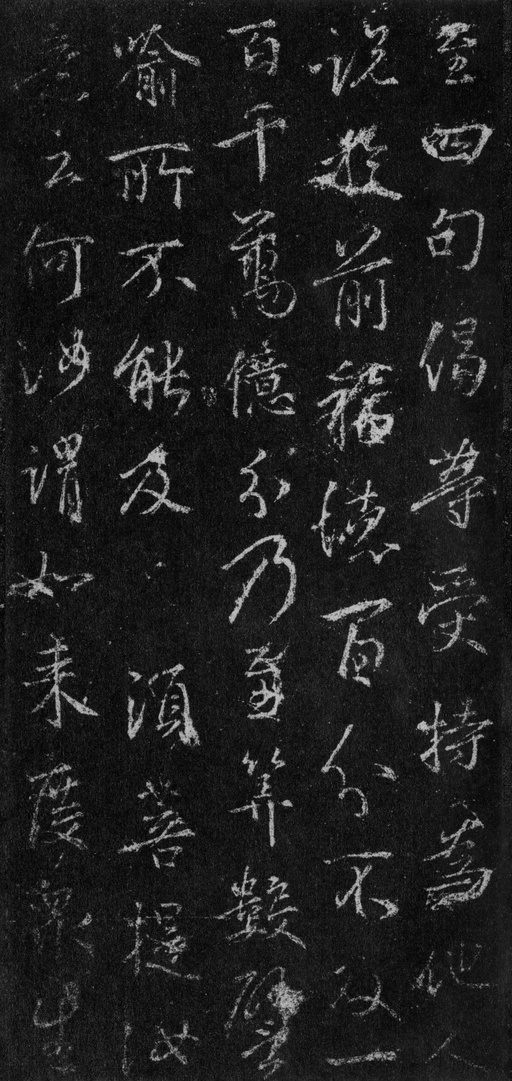 至四句偈等受特為他人
說於前福德百分不及一
百千萬億分乃至算數譬
喻所不能及 須菩提於
意云何汝謂如來度眾生